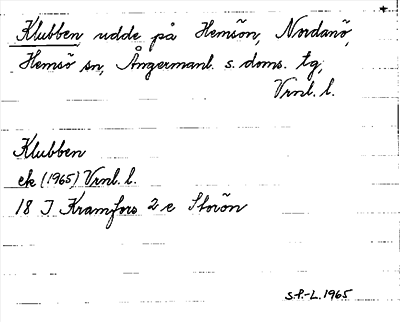 Klubben, udde på Hemsön, Nordanö,
Hemsö sn, Ångermanl. s. doms. tg,
Vrnl. l.
Klubben
ek (1965) Vrnl. l.
18 I Kramfors 2 e Storön
S.P.-L. 1965